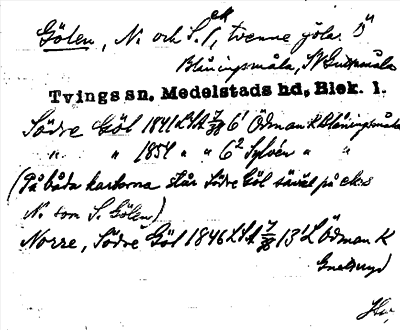 Gölen, N. och S., ek, tvenne gölar. Ö
Blåningsmåla, SV
Tvings sn. Medelstads hd, Blek. l.
Södre Göl 1841 LSA 7/38 6¹ Ödman K Blåningsmåla
" " 1854 " " 6² Sylvén " "
(På båda kartorna står Södre Göl såväl på ek:s
N. som S. Gölen)
Norre, Södre Göl 1846 LSA 7/38 13¹ L Ödman K